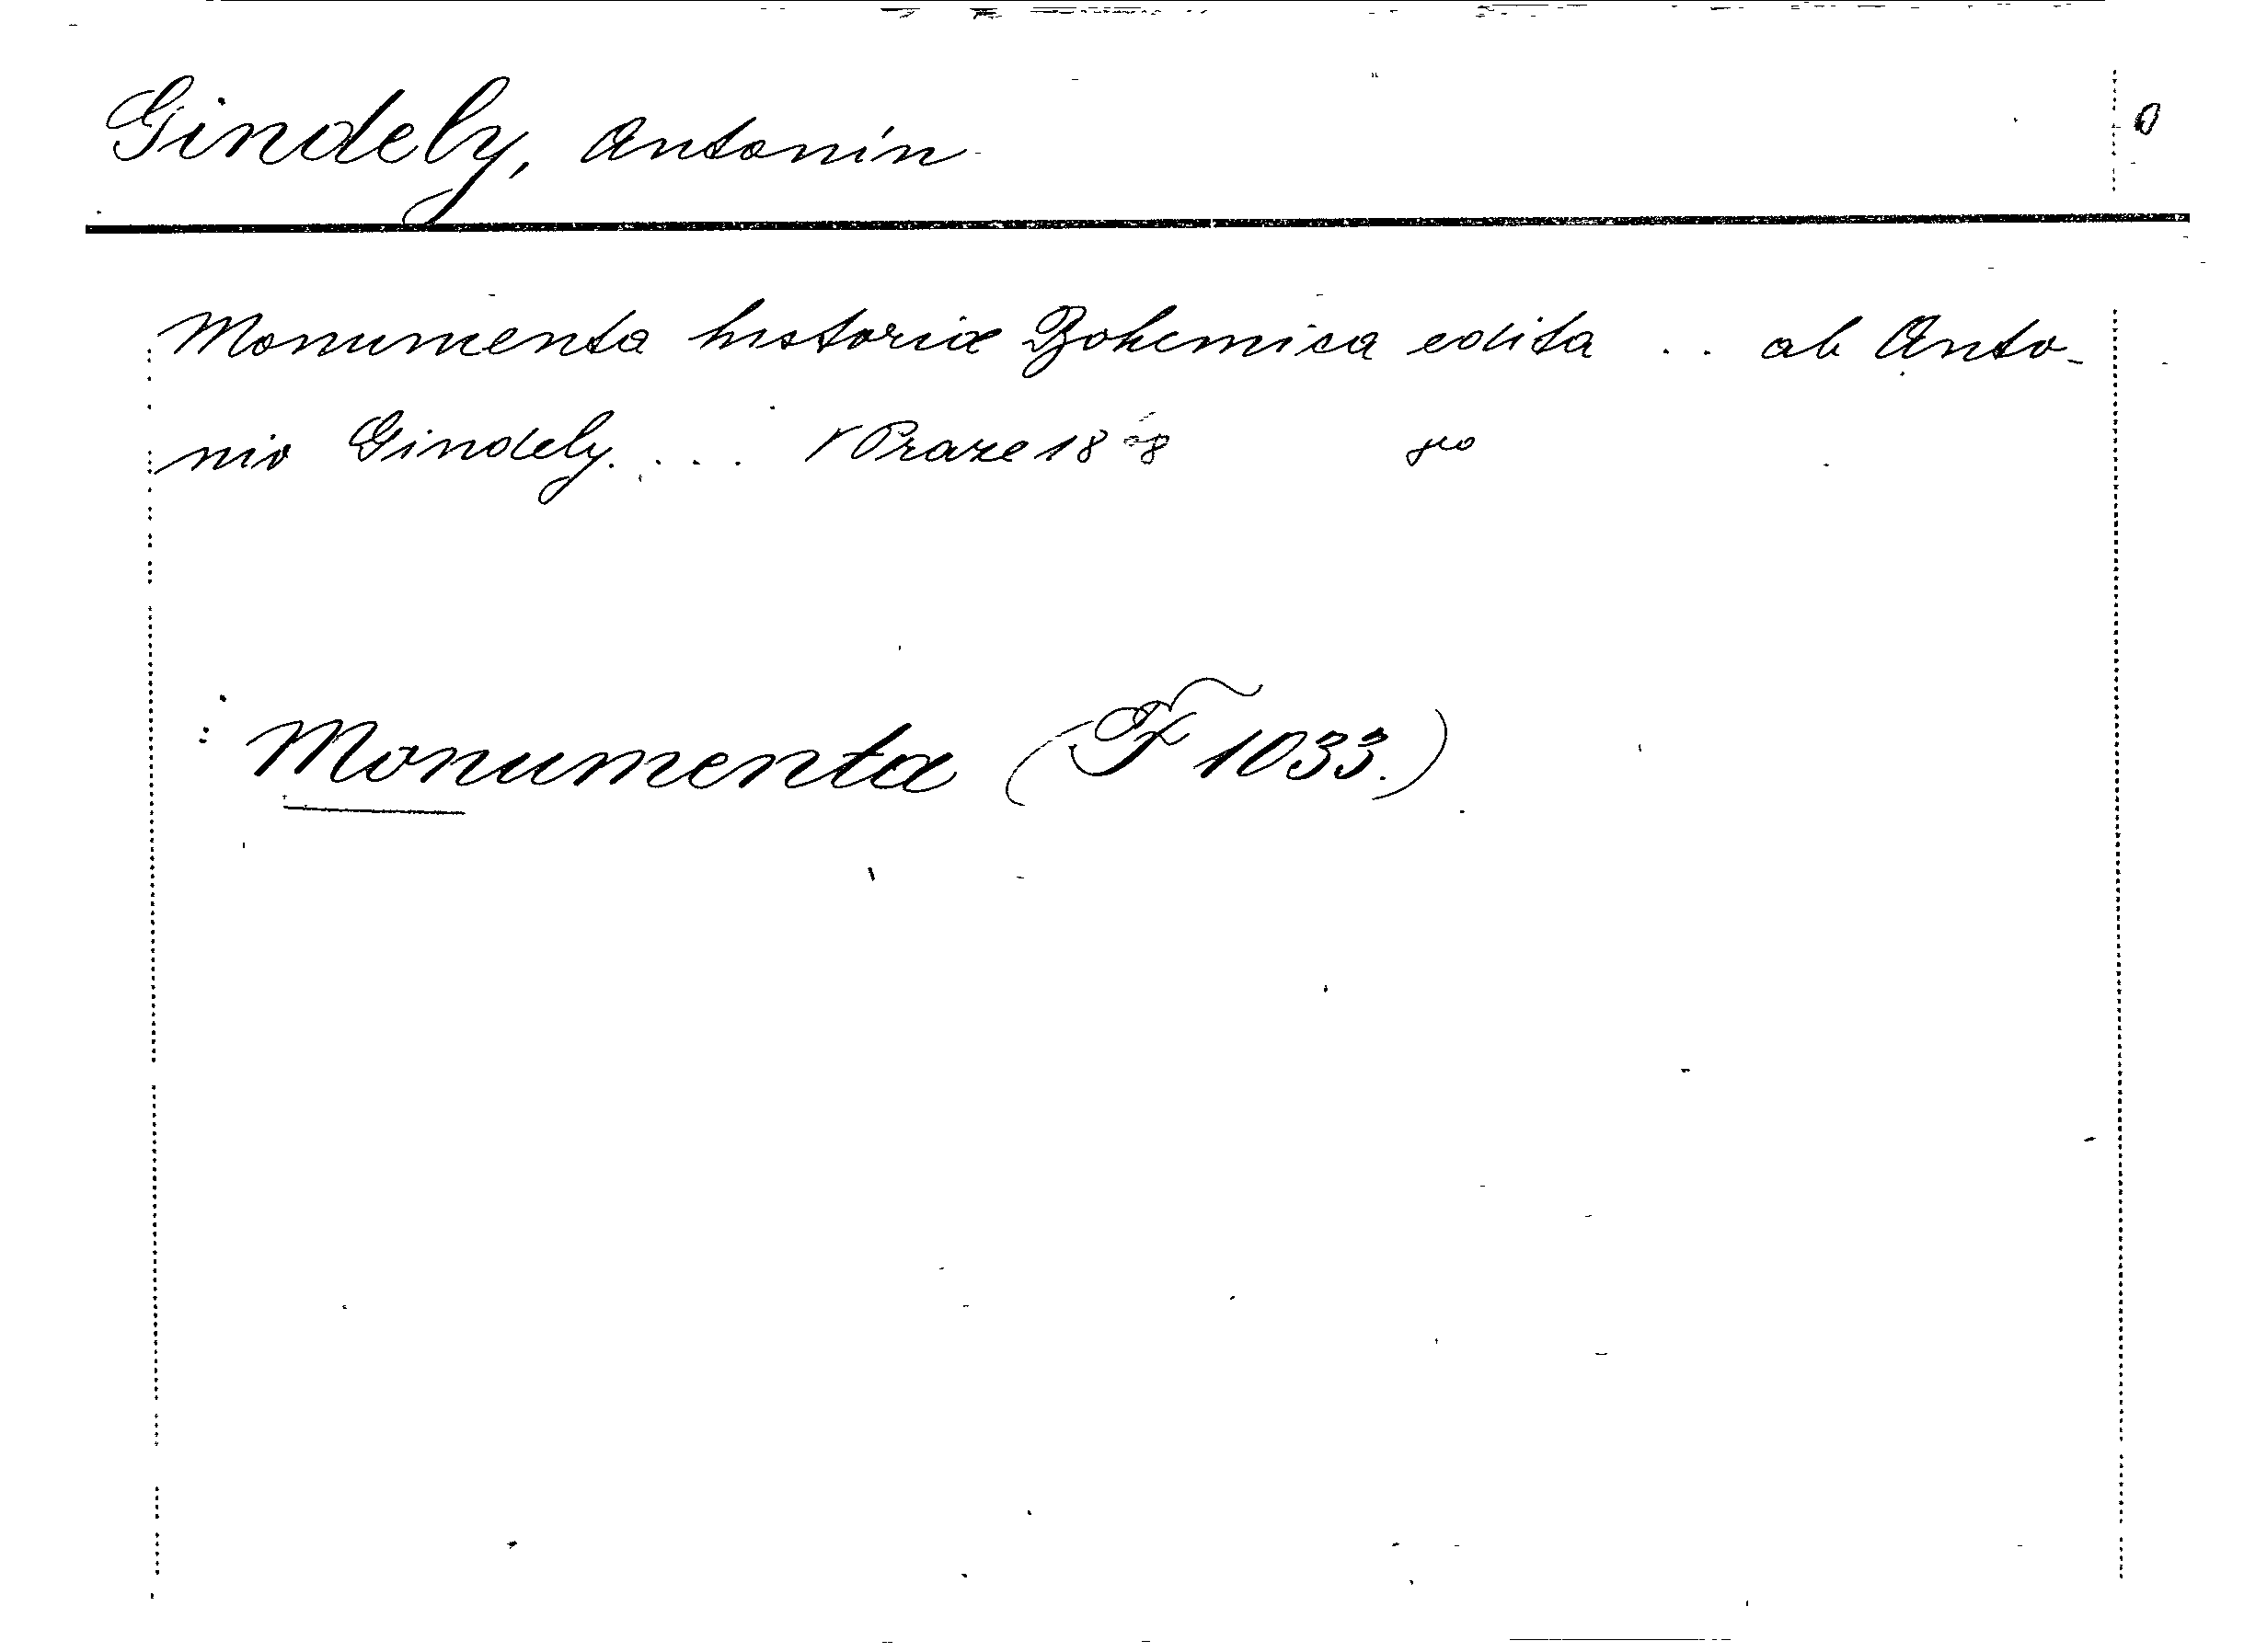 Gindely, Antonín
Monumenta historiæ Bohemica edita .. ab Anto-
nio Gindely.... V Praze 18
Monumenta (F 1033.)